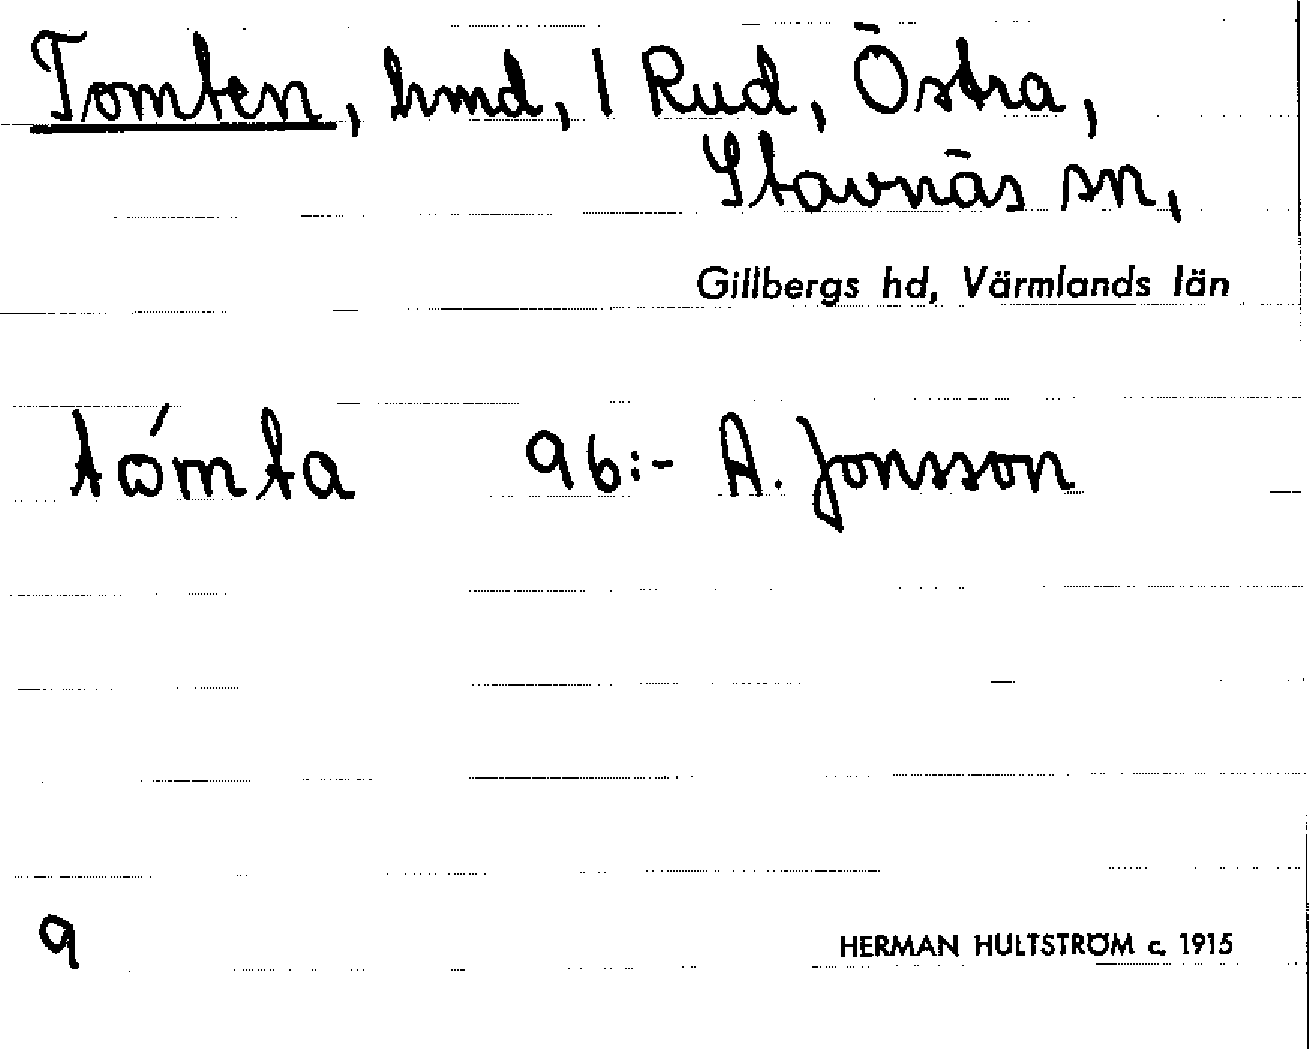 Tomten, hmd, 1 Rud, Östra,
Stavnäs sn,
Gillbergs hd, Värmlands län
tώmta 96:- A. Jonsson
9
HERMAN HULTSTRÖM c. 1915